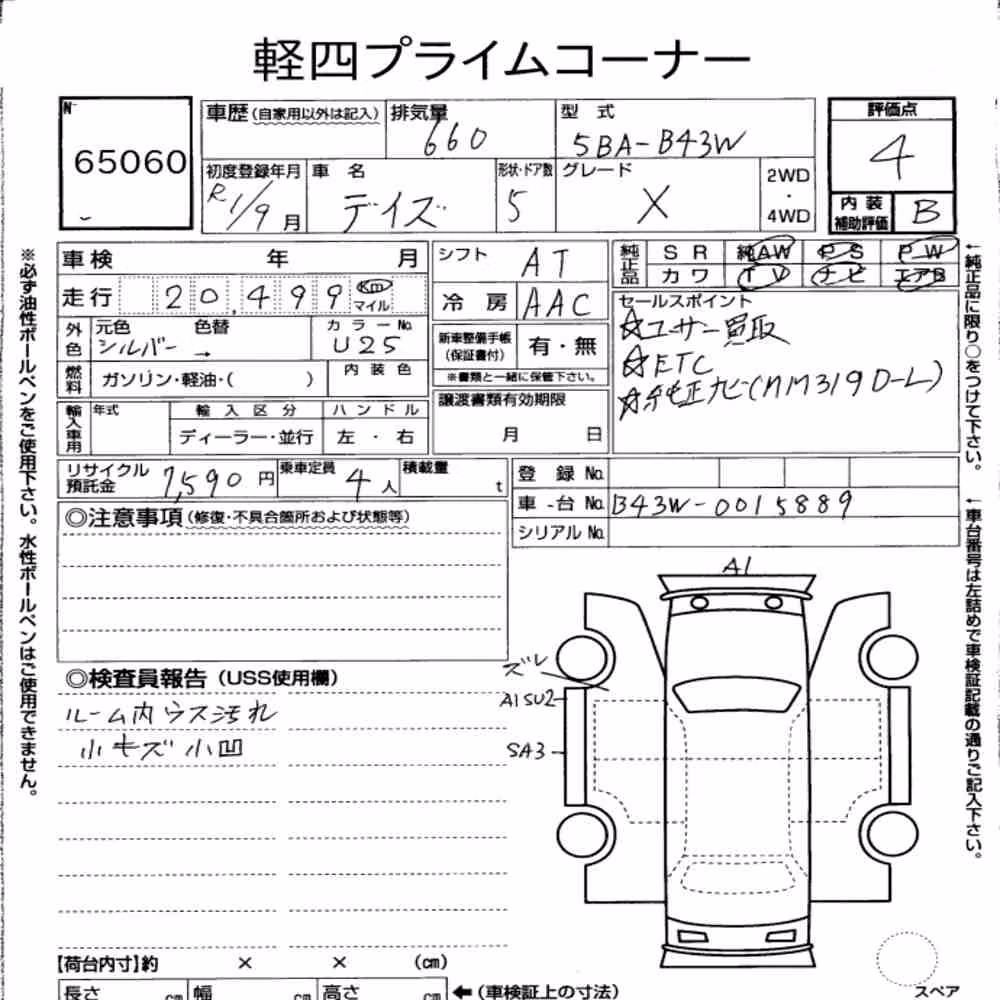 軽四プライムコーナー
№
65060
車歴(自家用以外は記入)
排気量
660
型 式
5BA-B43W
評価点
4
初度登録年月
R1/9月
車 名
デイズ
形状・ドア数
5
グレード
X
2WD
・
4WD
内 装
補助評価
B
車検 年 月
走行 20,499 Km
マイル
シフト
AT
冷 房
AAC
純正品
S R 純AW P S P W
カワ T V ナビ エアB
外色
元色 色替
シルバー →
カラーNo.
U25
新車整備手帳
(保証書付)
有・無
※書類と一緒に保管下さい。
セールスポイント
☆ユーザー買取
☆ETC
☆純正ナビ(MM319D-L)
燃料
ガソリン・軽油・( )
内 装 色
譲渡書類有効期限
月 日
輸入車用
年式
輸 入 区 分
ディーラー・並行
ハ ン ド ル
左 ・ 右
リサイクル
預託金
7,590円
乗車定員
4人
積載量
t
登 録 No.
車 台 No. B43W-0015889
シリアル No.
◎注意事項(修復・不具合箇所および状態等)
◎検査員報告(USS使用欄)
ルーム内ウス汚れ
小キズ小凹
A1
ズレ
A1SU2
SA3
【荷台内寸】約 × × (cm)
長さ cm 幅 cm 高さ cm ←(車検証上の寸法)
スペア
※必ず油性ボールペンをご使用下さい。水性ボールペンはご使用できません。
←純正品に限り○をつけて下さい。
←車台番号は左詰めで車検証記載の通りご記入下さい。